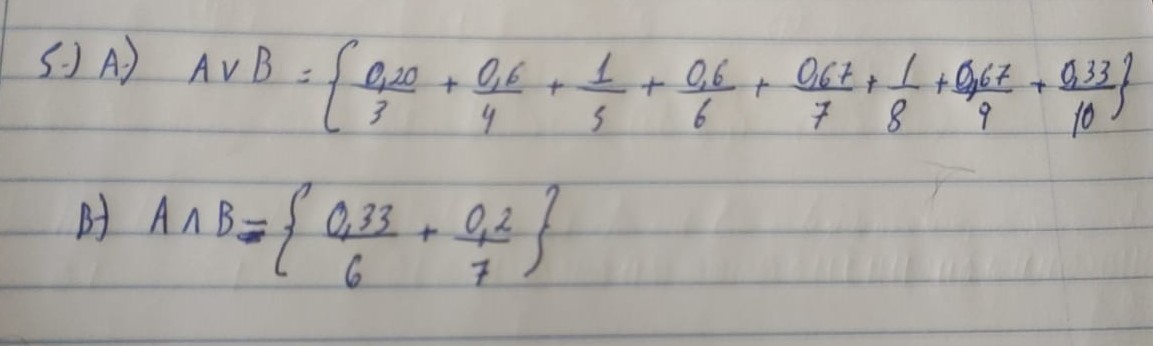 5-) A-) A ∨ B = { 0,20/3 + 0,6/4 + 1/5 + 0,6/6 + 0,67/7 + 1/8 + 0,67/9 + 0,33/10 }
B-) A ∧ B = { 0,33/6 + 0,2/7 }